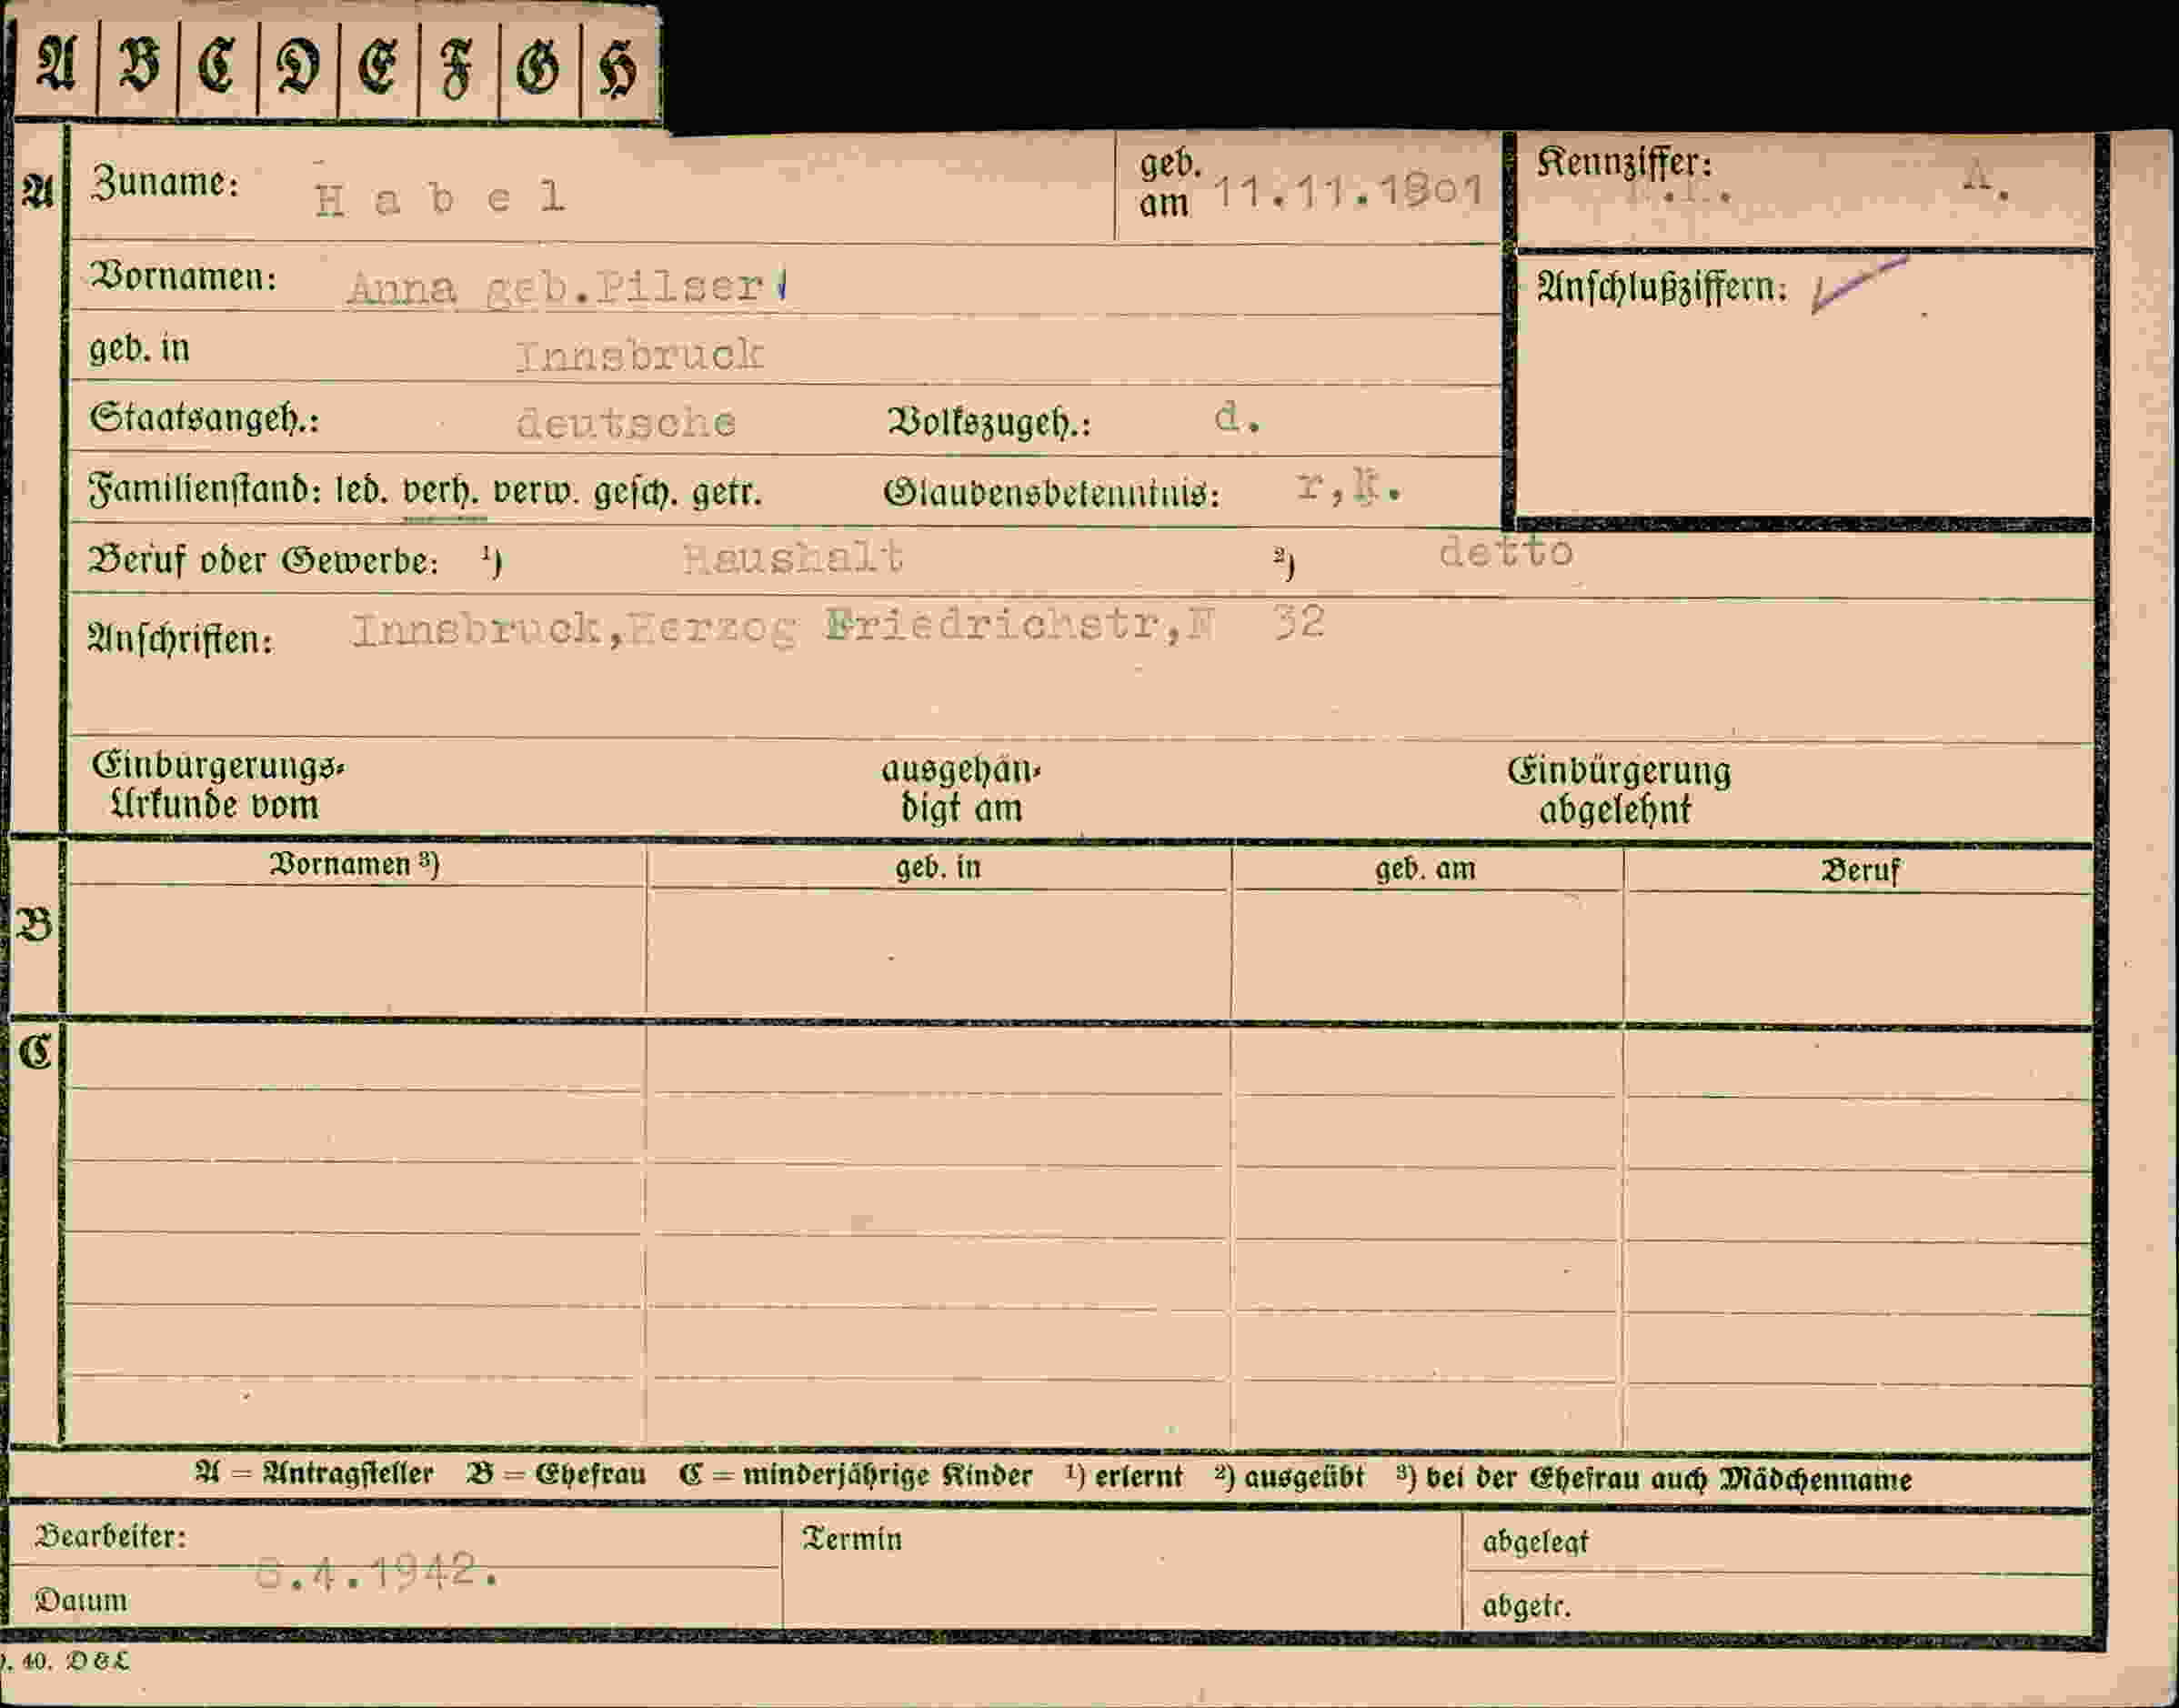 A B C D E F G H
A Zuname: H a b e l geb. am 11.11.1901 Kennziffer: A.
Vornamen: Anna geb.Pilser Anschlußziffern:
geb. in Innsbruck
Staatsangeh.: deutsche Volkszugeh.: d.
Familienstand: led. verh. verw. gesch. getr. Glaubensbekenntnis: r,k.
Beruf oder Gewerbe: ¹) Haushalt ²) detto
Anschriften: Innsbruck,Herzog Friedrichstr,N 32
Einbürgerungs-Urkunde vom ausgehändigt am Einbürgerung abgelehnt
Vornamen ³) geb. in geb. am Beruf
B
C
A = Antragsteller B = Ehefrau C = minderjährige Kinder ¹) erlernt ²) ausgeübt ³) bei der Ehefrau auch Mädchenname
Bearbeiter: Termin abgelegt
8.4.1942.
Datum abgetr.
40. D&L